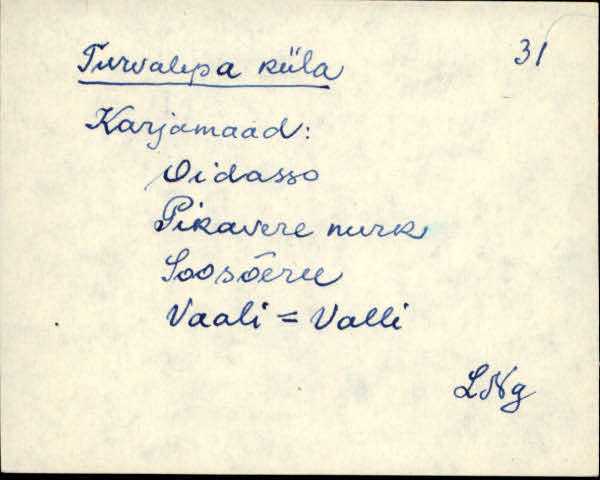 Turvalepa küla 31
Karjamaad:
Oidasso
Pikavere nurk
Soosõeru
Vaali = Valli
LNg